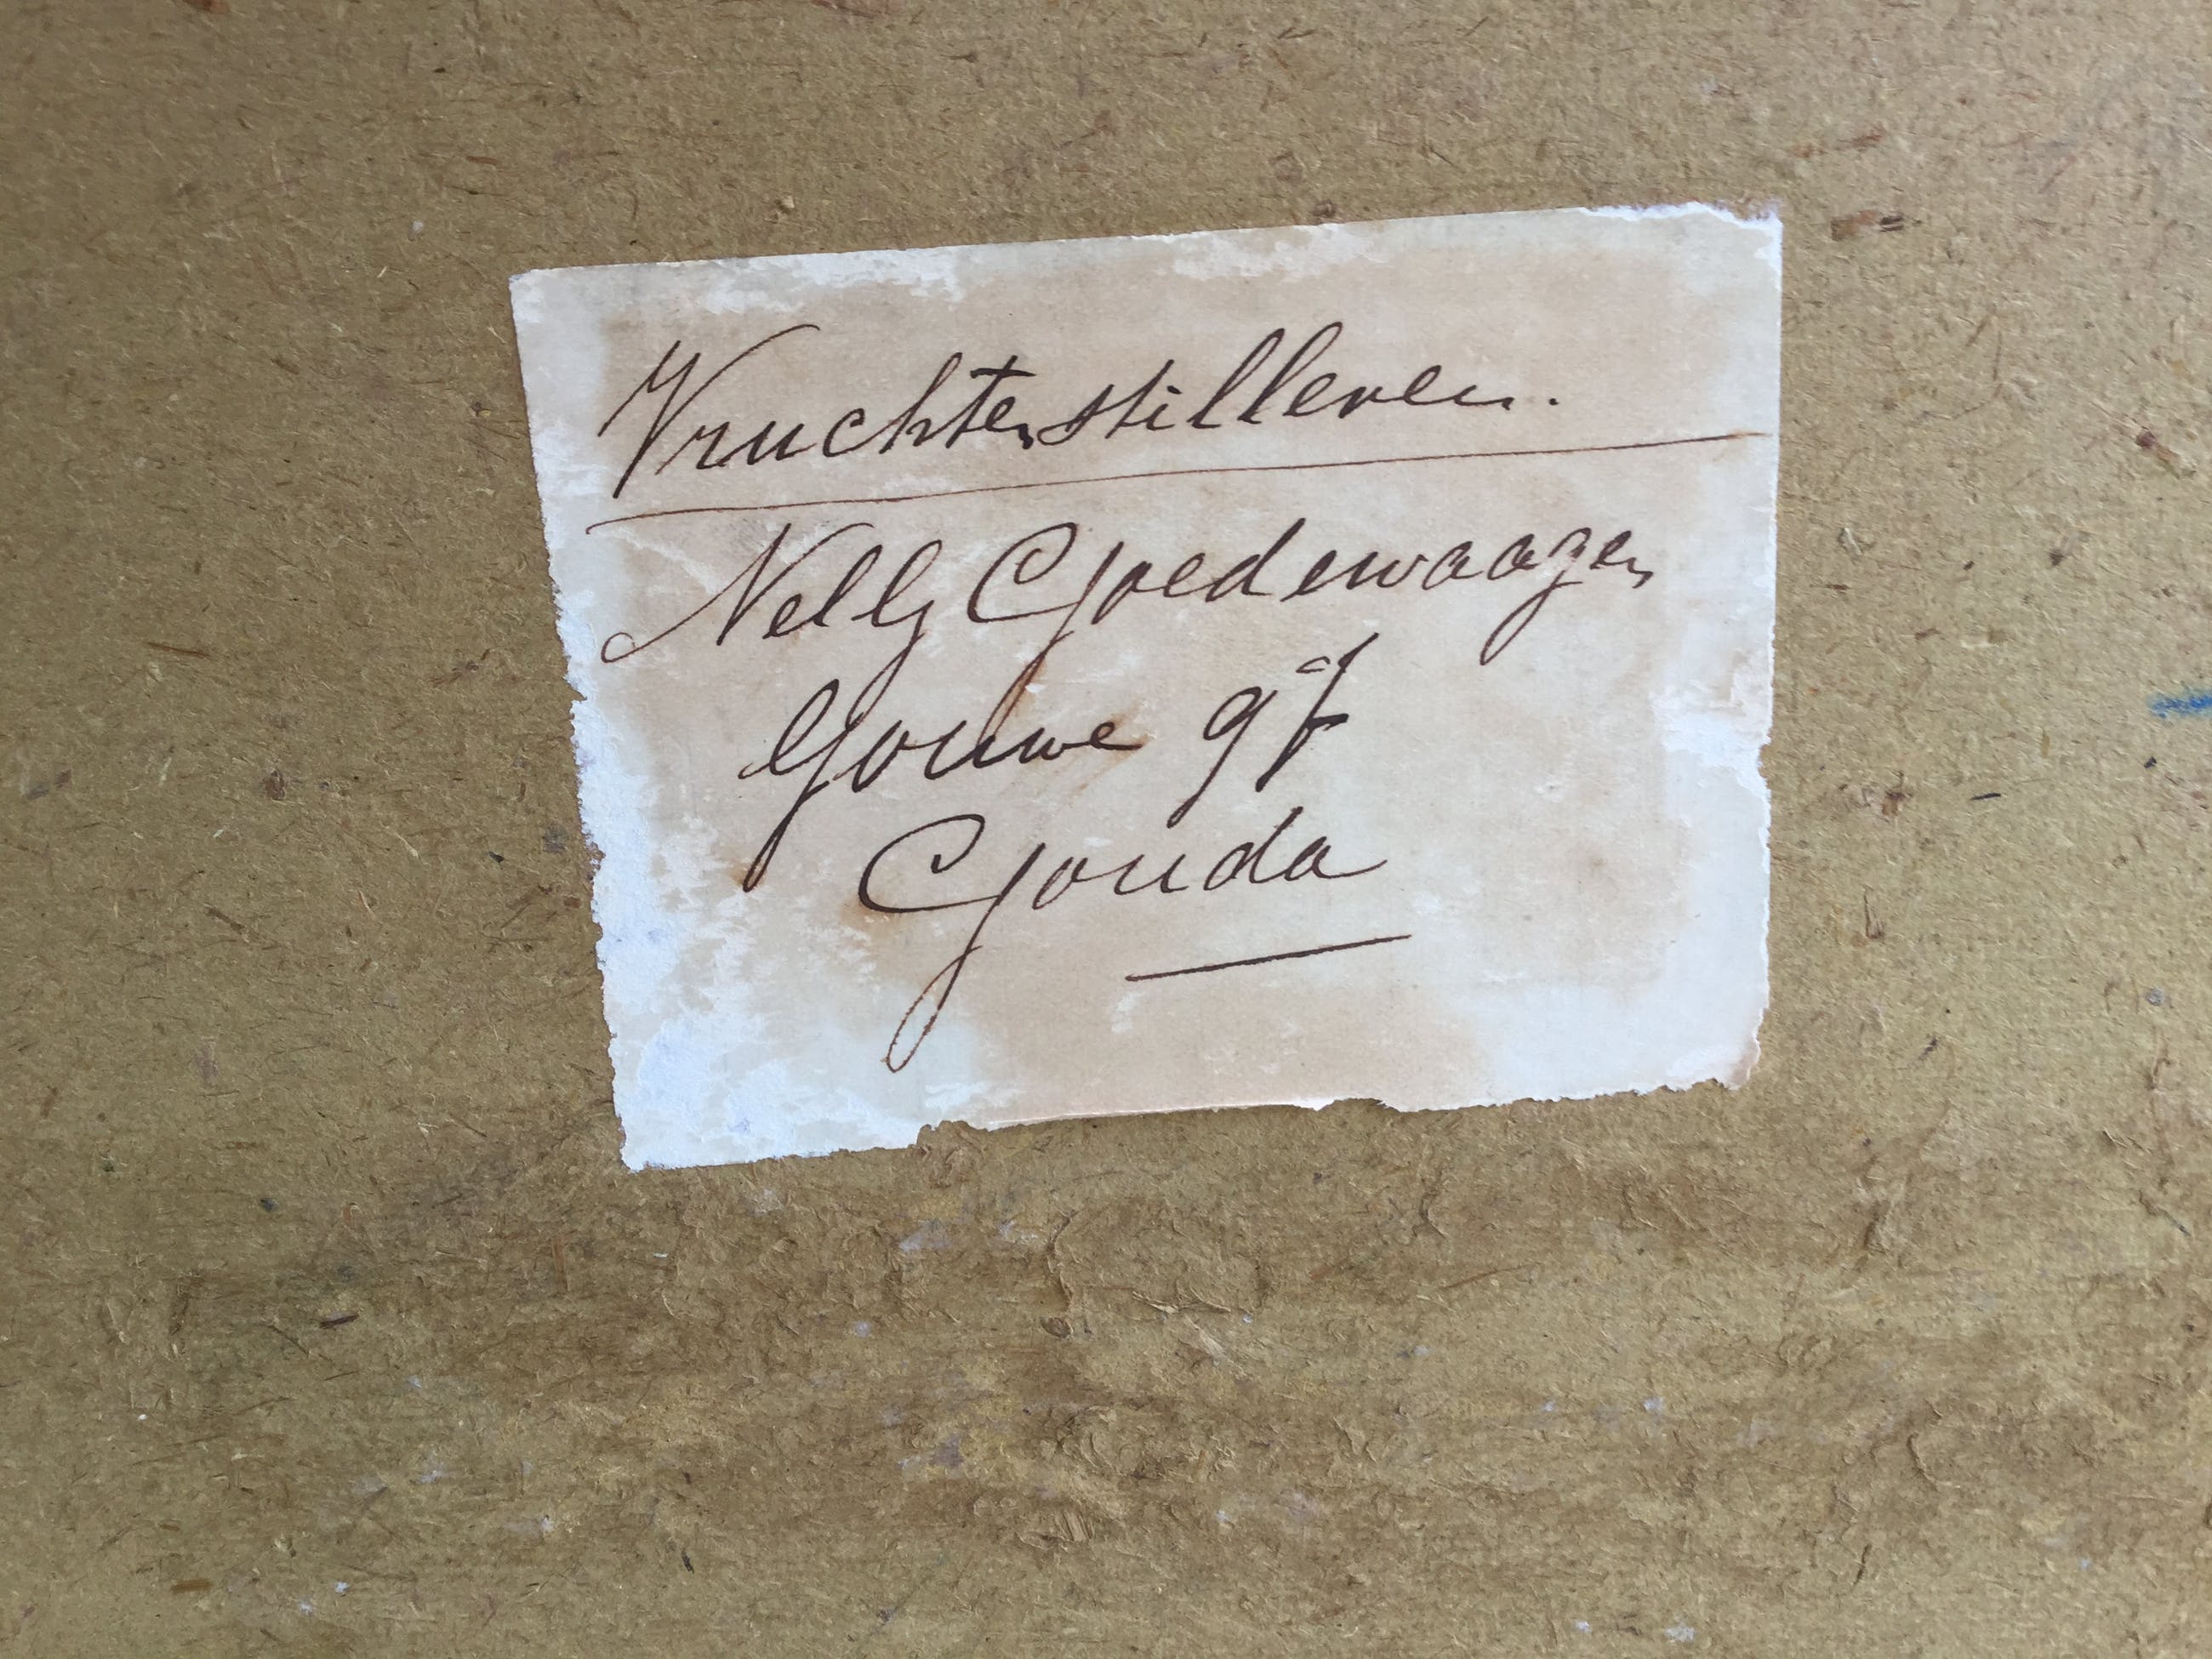 Vruchtenstilleven.
Nelly Goedewaagen
Gouwe 97
Gouda